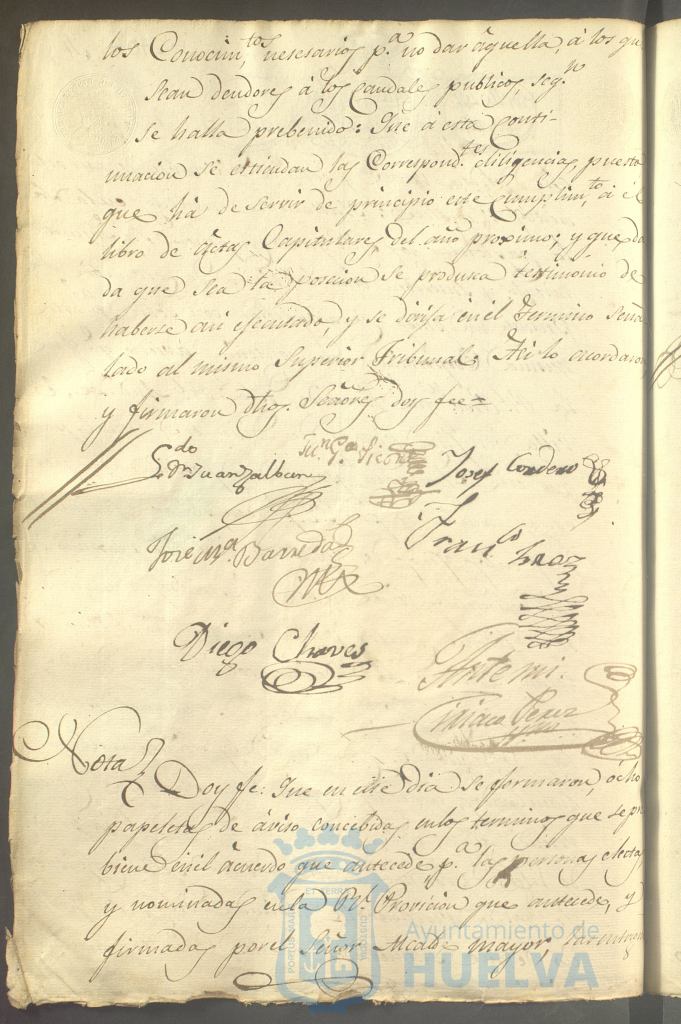 los Conocim.tos nesesarios p.a no dar aquella, á los qu
sean deudores á los caudales publicos, seg.n
se halla prebenido: Que á esta conti-
nuacion se estiendan las Correspond.tes diligencias, puesto
que há de servir de principio este Cumplim.to á el
libro de Actas Capitulares del año proximo; y que da
da que sea la posecion se produsca testimonio de
haberse asi ejecutado, y se dirija en el termino Seña
lado al mismo Superior Tribunal. Asi lo acordaron
y firmaron dhos. Señores doy fee=
L.do dn Juan
Josef Cordero
Jose Ma. Barreda
Fran.co
Diego Chaves
Ante mi.
Ciriaco Perez
Nota
Doy fe: Que en este dia se formaron, ócho
papeletas de áviso concebidas en los terminos que se pre
biene en el ácuerdo que antecede, p.a las personas electas,
y nominadas en la Rl. Provicion que antecede, y
firmadas por el Señor Alcalde mayor,
Ayuntamiento de
HUELVA